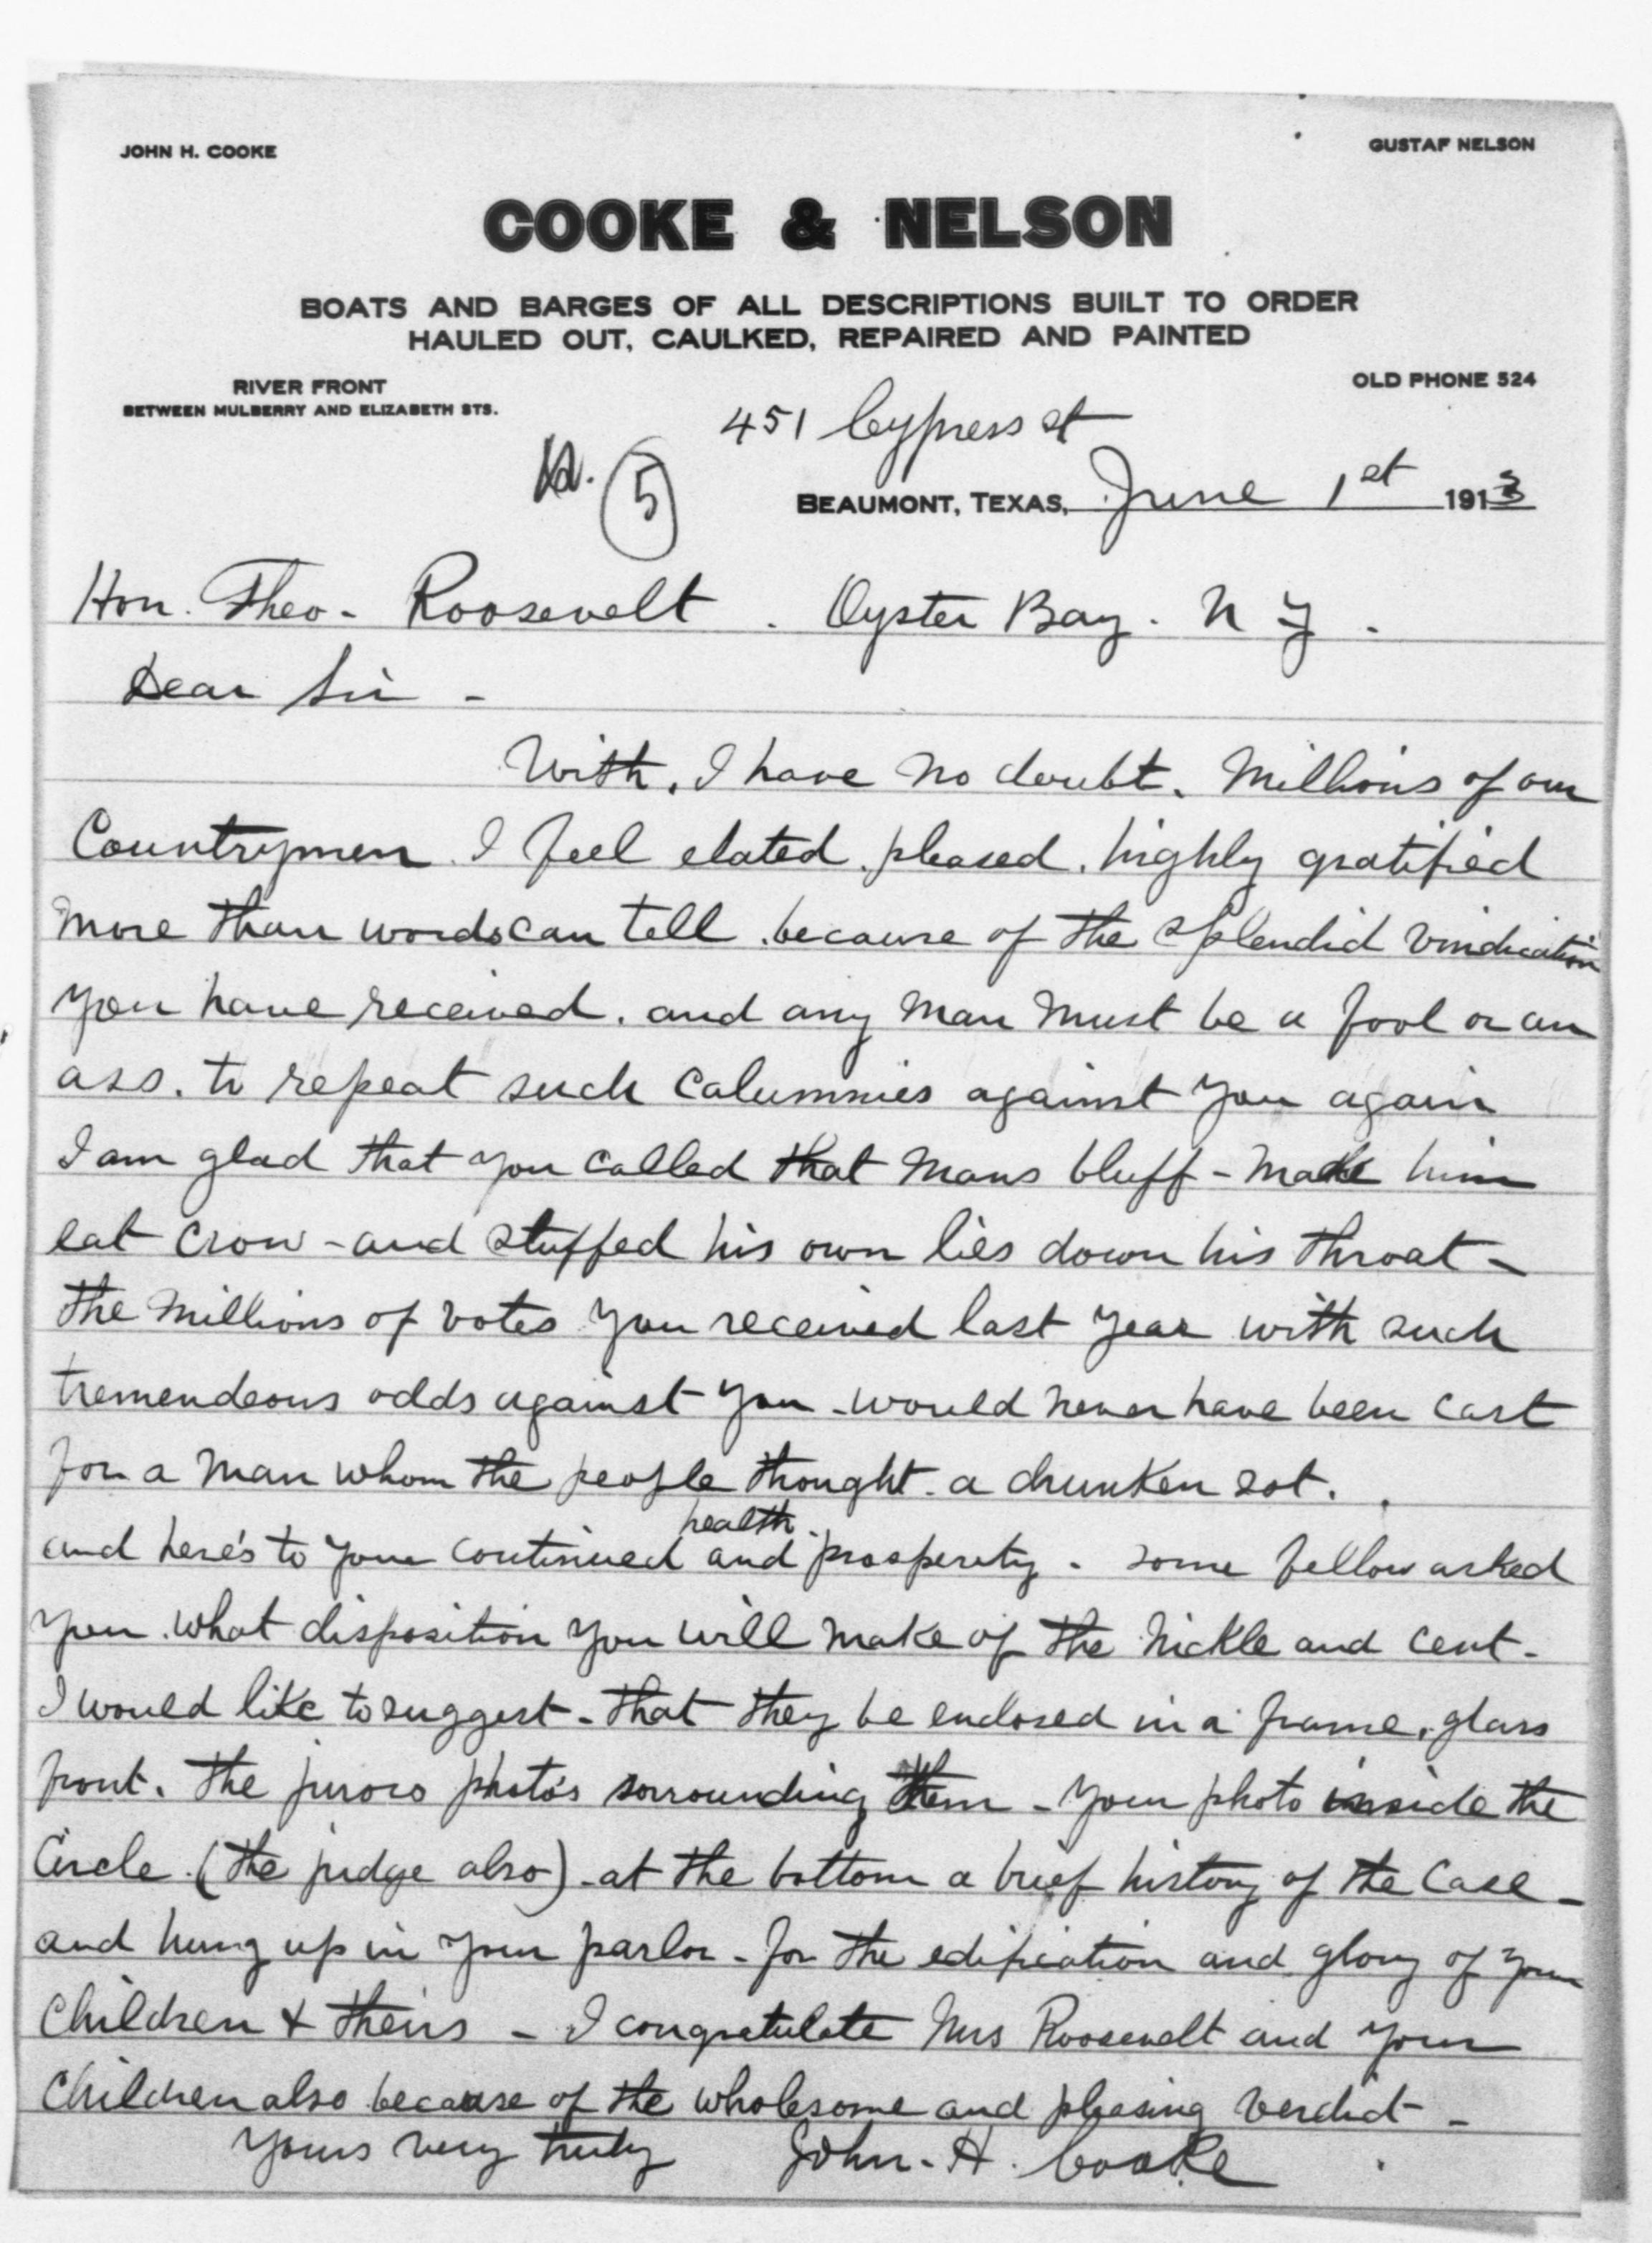 JOHN H. COOKE
GUSTAF NELSON
COOKE & NELSON
BOATS AND BARGES OF ALL DESCRIPTIONS BUILT TO ORDER
HAULED OUT, CAULKED, REPAIRED AND PAINTED
RIVER FRONT
BETWEEN MULBERRY AND ELIZABETH STS.
OLD PHONE 524
451 Cypress st
5
BEAUMONT, TEXAS, June 1st 1913
Hon. Theo- Roosevelt. Oyster Bay. N Y.
Dear Sir -
With, I have no doubt, Millions of our
Countrymen. I feel elated, pleased, highly gratified
more than words can tell, because of the splendid vindication
you have received. and any man must be a fool or an
ass. to repeat such calumnies against you again
I am glad that you called that mans bluff - made him
eat crow - and stuffed his own lies down his throat -
the millions of votes you received last year with such
tremendeous odds against you - would never have been cast
for a man whom the people thought - a drunken sot.
and here's to your continued health and prosperity - some fellow asked
you what disposition you will make of the nickle and cent -
I would like to suggest - that they be enclosed in a frame, glass
front. the jurors photo's sorrounding them - your photo inside the
Circle (the judge also) - at the bottom a brief history of the Case -
and hung up in your parlor - for the edification and glory of your
Children & theirs - I congratulate Mrs Roosevelt and your
Children also because of the wholesome and pleasing verdict -
Yours very truly John. H. Cooke